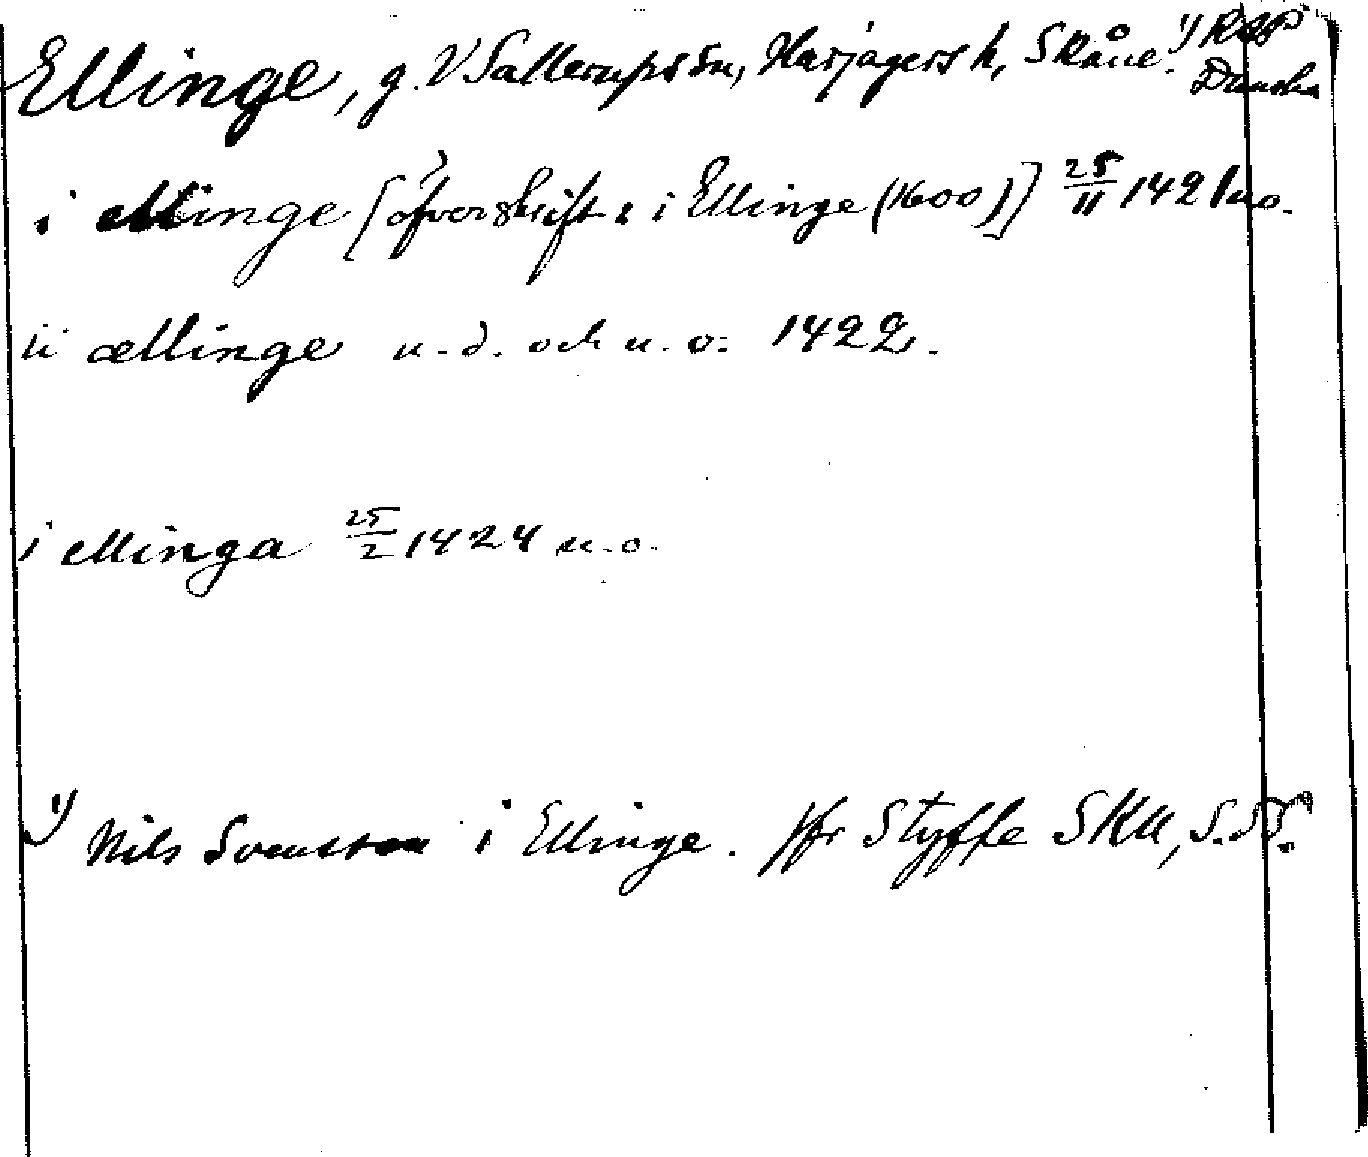 Ellinge, g. V Sallerups sn, Harjagers h, Skåne. 1) RAP
Danska
i ellinge [öfverskift: i Ellinge (1600)] 25/11 1421 u.o.
ii ællinge u.d. och u.o. 1422.
i ellinga 25/2 1424 u.o.
1) Nils Svensson i Ellinge. Jfr Styffe SKU, S.